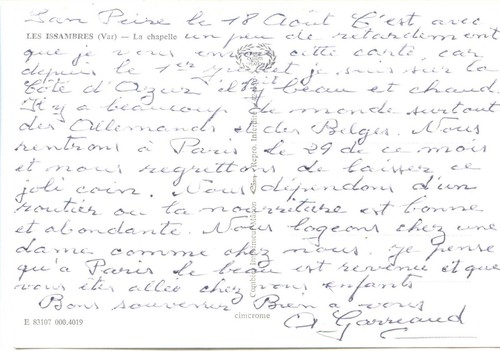 San Peire le 18 Août C'est avec
LES ISSAMBRES (Var) — La chapelle
un peu de retardement
que je vous envoie cette carte, car
depuis le 1er Juillet je suis sur la
Côte d'Azur il fait beau et chaud.
Il y a beaucoup de monde surtout
des Allemands et des Belges. Nous
rentrons à Paris le 29 de ce mois
et nous regrettons de laisser ce
joli coin. Nous dépendons d'un
routier ou la nourriture est bonne
et abondante. Nous logeons chez une
dame comme chez nous. Je pense
qu'à Paris le beau est revenu et que
vous êtes allée chez vos enfants
Bons souvenirs Bien à vous
cimcrome
E 83107 000.4019
Garreaud